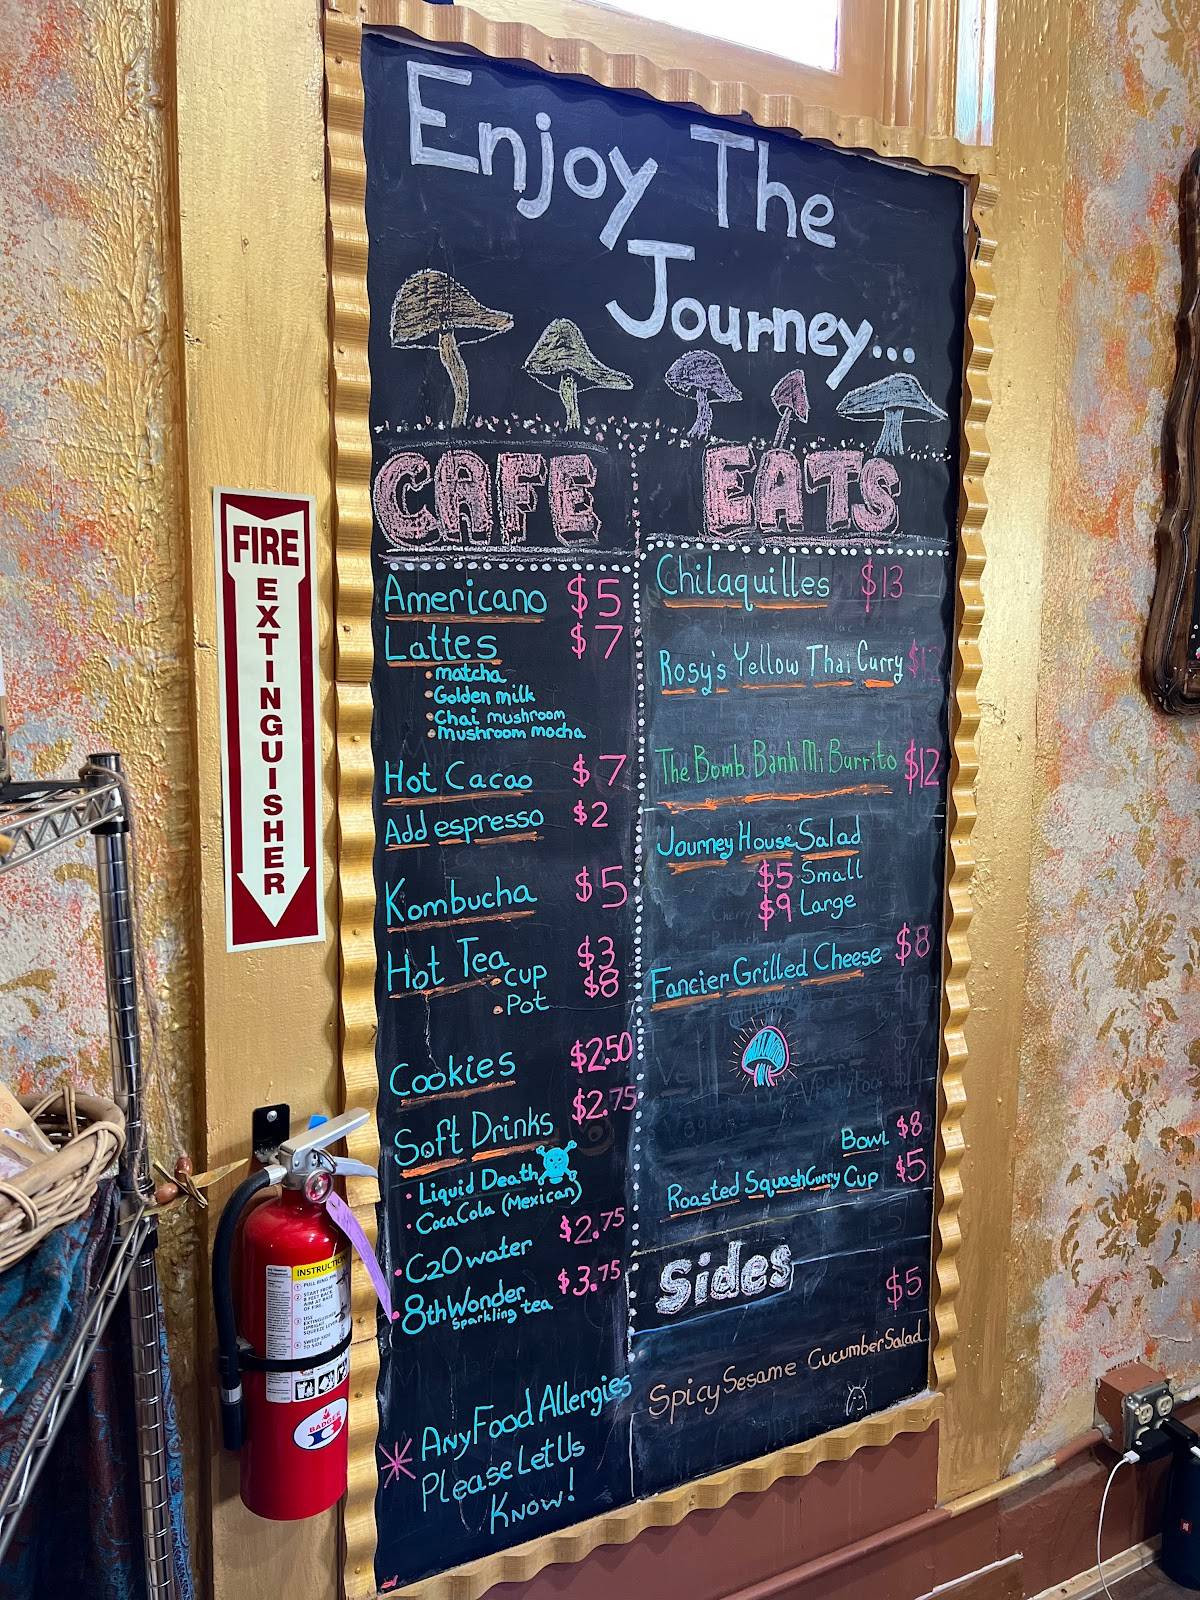 Enjoy The
Journey...
CAFE
Americano $5
Lattes $7
• matcha
• Golden milk
• Chai mushroom
• Mushroom mocha
Hot Cacao $7
Add espresso $2
Kombucha $5
Hot Tea $3
• cup $8
• Pot
Cookies $2.50
Soft Drinks $2.75
• Liquid Death
• CocaCola (Mexican)
• C2O water $2.75
• 8thWonder $3.75
sparkling tea
Any Food Allergies
Please Let Us
Know!
EATS
Chilaquilles $13
Rosy's Yellow Thai Curry
The Bomb Banh Mi Burrito $12
Journey House Salad
$5 Small
$9 Large
Fancier Grilled Cheese $8
Bowl $8
Roasted Squash Curry Cup $5
Sides
$5
Spicy Sesame Cucumber Salad
FIRE
EXTINGUISHER
INSTRUCTIONS
BADGER